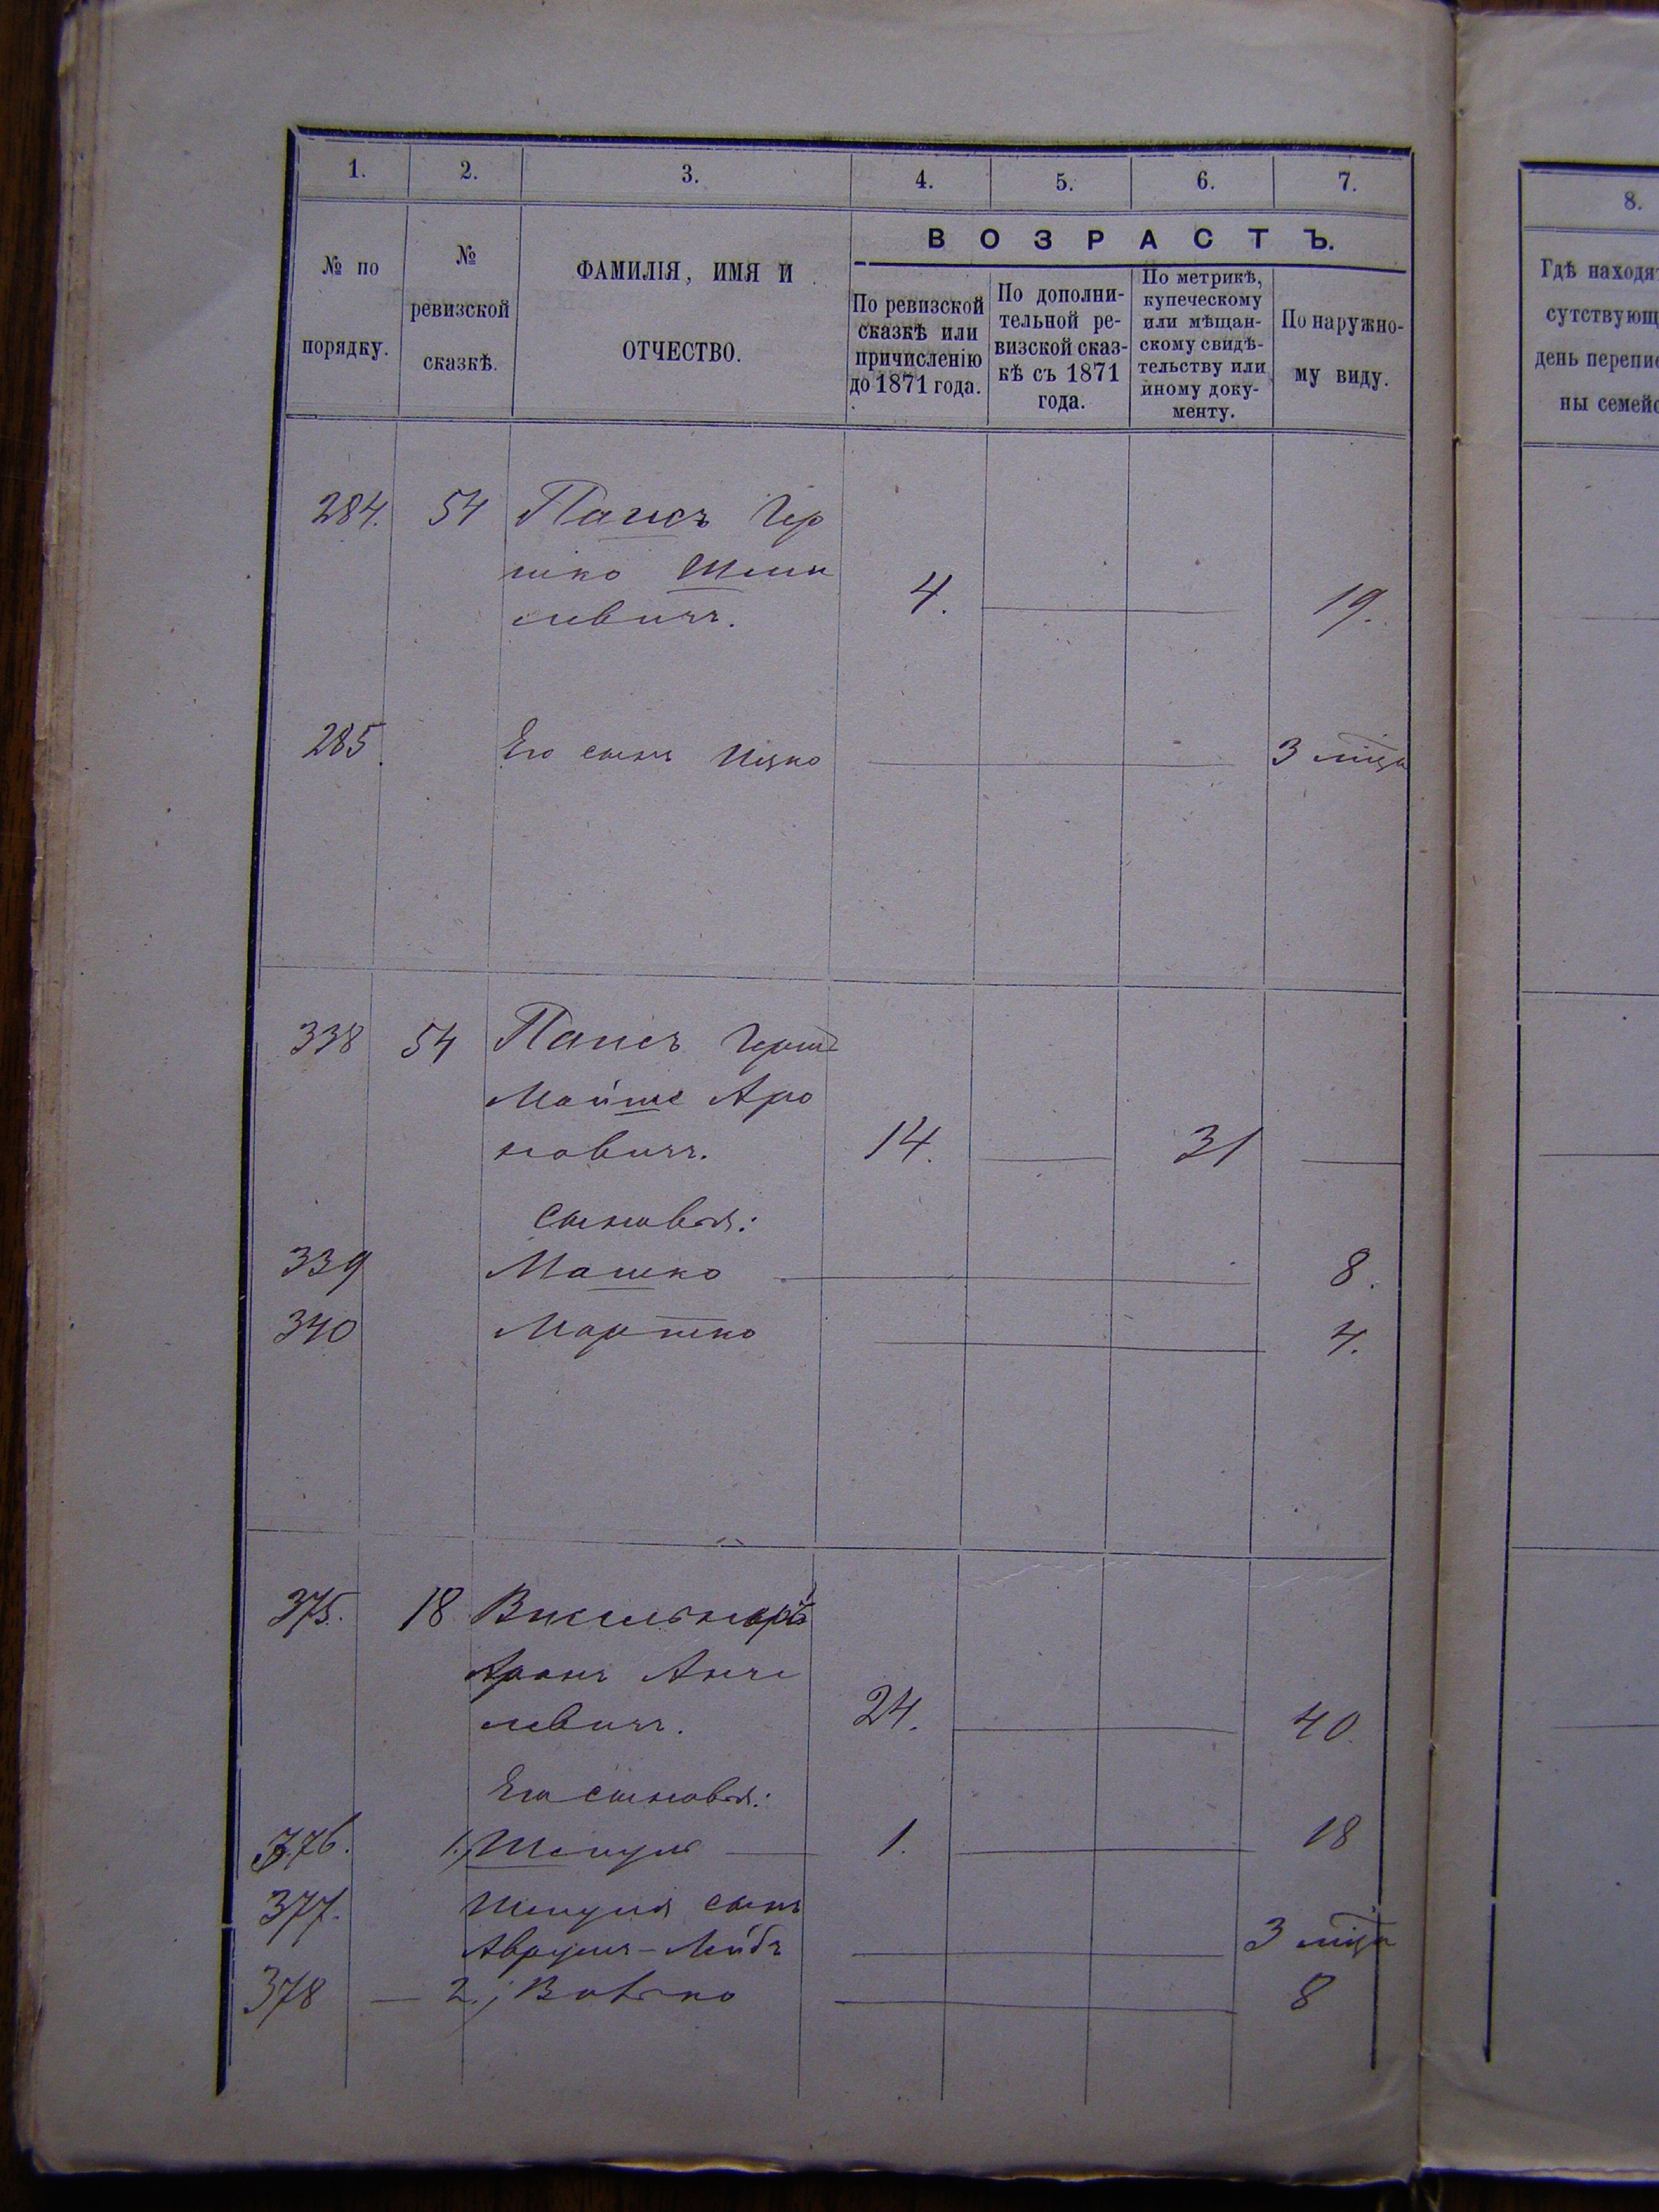 1. 2. 3. 4. 5. 6. 7.
№ по порядку.
№ ревизской сказкѣ.
ФАМИЛІЯ, ИМЯ И ОТЧЕСТВО.
ВОЗРАСТЪ.
По ревизской сказкѣ или причисленію до 1871 года.
По дополнительной ревизской сказкѣ съ 1871 года.
По метрикѣ, купеческому или мѣщанскому свидѣтельству или иному документу.
По наружному виду.
8.
Гдѣ находя
сутствующ
день перепи
ны семей
284. 54 Паисъ Гер
шко
левичъ. 4. 19.
285. Его сынъ Ицко 3 мѣца
338 54 Паисъ Герш
Мойше Аро
новичъ. 14. 31
сыновья:
339 Машко 8.
340 4.
375. 18
Аронъ Анче
левичъ. 24. 40.
Его сыновья:
376. 1., Шепсуль 1. 18
377. сынъ
Аврумъ-Лейбъ 3 мѣца
378 2., Вовко 8